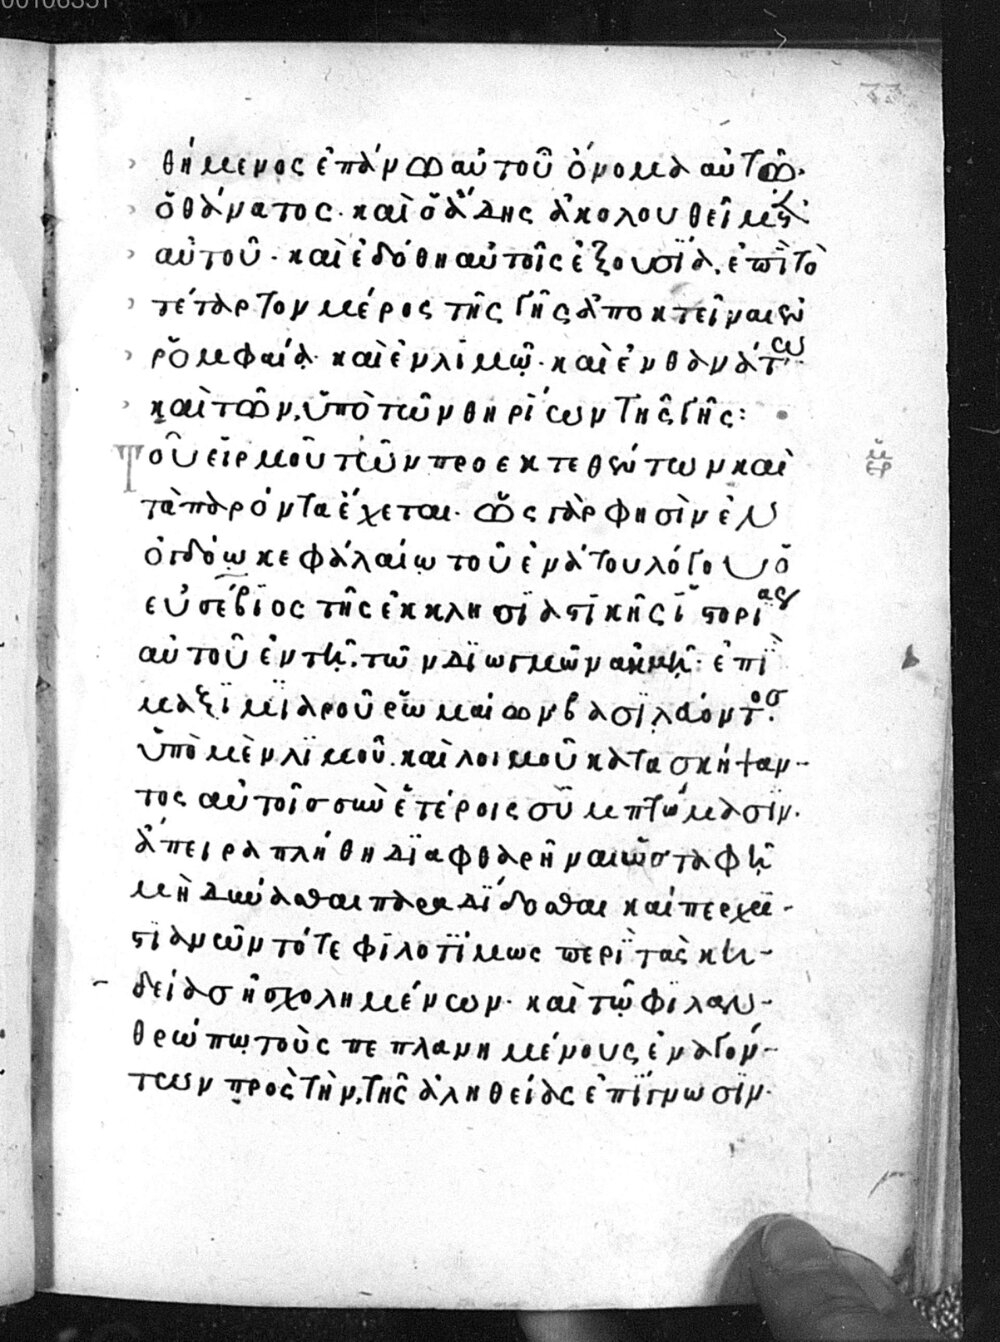 θήμενος ἐπάνω αὐτοῦ ὄνομα αὐτῶ·
ὁ θάνατος· καὶ ὁ ἅδης ἀκολουθεῖ μετ
αὐτοῦ· καὶ ἐδόθη αὐτοῖς ἐξουσία, ἐπὶ τὸ
τέταρτον μέρος τῆς γῆς ἀποκτεῖναι ἐν
ρομφαία· καὶ ἐν λιμῷ· καὶ ἐν θανάτω
καὶ τῶν, ὑπὸ τῶν θηρίων τῆς γῆς:
Τοῦ εἱρμοῦ τῶν προεκτεθέντων καὶ
τὰ παρόντα ἔχεται· ὡς γὰρ φησὶν ἐν
ὀγδόῳ κεφαλαίῳ τοῦ ἐνάτου λόγου ὁ
εὐσέβιος τῆς ἐκκλησιαστικῆς ἱστορίας
αὐτοῦ ἐν τῆ, τῶν διωγμῶν ἀκμῆ: ἐπὶ
μαξιμιαροῦ ῥωμαίων βασιλεύοντος
ὑπὸ μὲν λιμοῦ, καὶ λοιμοῦ κατασκήψαν-
τος αὐτοῖσ σὺν ἑτέροις συμπτώμασιν·
ἄπειρα πλήθη διαφθαρῆναι ὥστε ταφῆ
μὴ δύνασθαι παραδίδοσθαι καίπερ χρι-
στιανῶν τότε φιλοτίμως περὶ τὰς κη-
δείασ ἠσχολημένων· καὶ τῷ φιλαν-
θρώπῳ τοὺς πεπλανημένους ἐναγόν-
των πρὸς τὴν, τῆς ἀληθείας ἐπίγνωσιν·